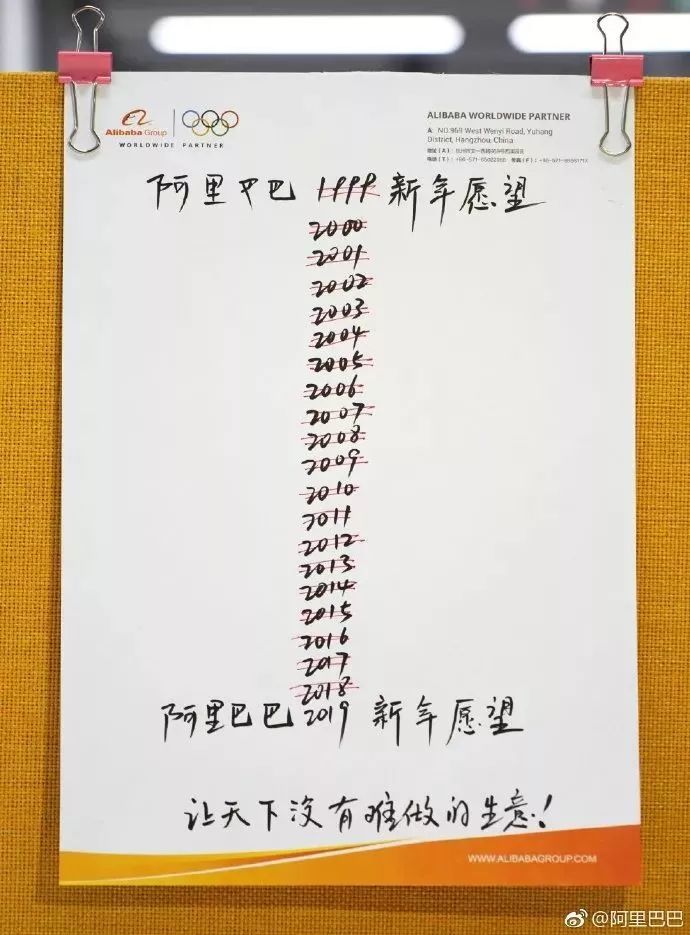 Alibaba Group
WORLDWIDE PARTNER
ALIBABA WORLDWIDE PARTNER
A: NO.969 West Wenyi Road, Yuhang
District, Hangzhou, China
阿里巴巴 1999 新年愿望
2000
2001
2002
2003
2004
2005
2006
2007
2008
2009
2010
2011
2012
2013
2014
2015
2016
2017
2018
阿里巴巴 2019 新年愿望
让天下没有难做的生意!
WWW.ALIBABAGROUP.COM
@阿里巴巴